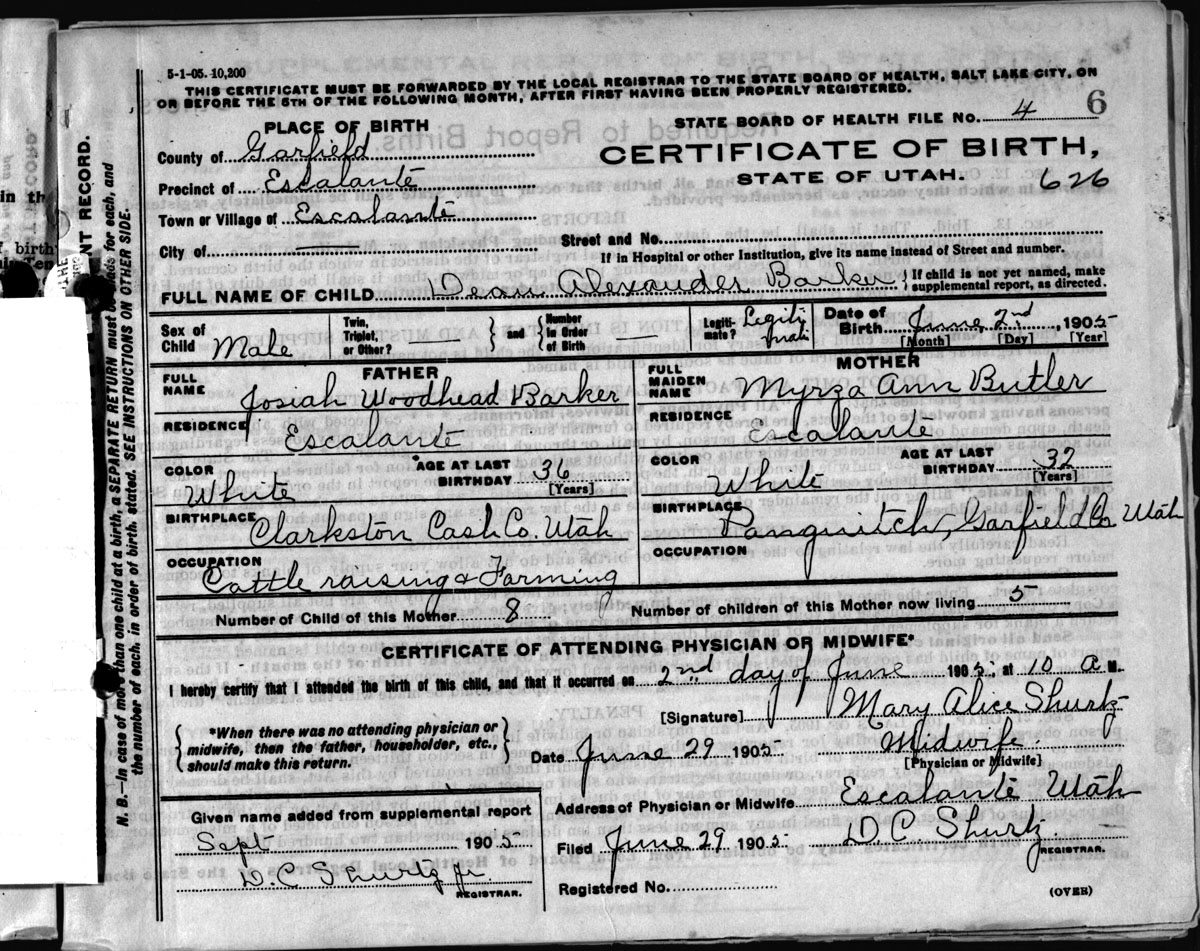 5-1-05. 10,200
THIS CERTIFICATE MUST BE FORWARDED BY THE LOCAL REGISTRAR TO THE STATE BOARD OF HEALTH, SALT LAKE CITY, ON
OR BEFORE THE 5TH OF THE FOLLOWING MONTH, AFTER FIRST HAVING BEEN PROPERLY REGISTERED.
6
PLACE OF BIRTH
STATE BOARD OF HEALTH FILE NO. 4
County of Garfield
CERTIFICATE OF BIRTH,
Precinct of Escalante
STATE OF UTAH. 626
Town or Village of Escalante
City of
Street and No.
If in Hospital or other Institution, give its name instead of Street and number.
FULL NAME OF CHILD Dean Alexander Barker { If child is not yet named, make
supplemental report, as directed.
Sex of Child Male
Twin, Triplet, or Other?
and
Number in Order of Birth
Legiti- mate? Legiti mate
Date of Birth June 2nd, 1905
[Month] [Day] [Year]
FATHER
MOTHER
FULL NAME Josiah Woodhead Barker
FULL MAIDEN NAME Myrza Ann Butler
RESIDENCE Escalante
RESIDENCE Escalante
COLOR White
AGE AT LAST BIRTHDAY 36 [Years]
COLOR White
AGE AT LAST BIRTHDAY 32 [Years]
BIRTHPLACE Clarkston Cash Co. Utah
BIRTHPLACE Panguitch, Garfield Co Utah
OCCUPATION Cattle raising & Farming
OCCUPATION
Number of Child of this Mother 8
Number of children of this Mother now living 5
CERTIFICATE OF ATTENDING PHYSICIAN OR MIDWIFE*
I hereby certify that I attended the birth of this child, and that it occurred on 2nd day of June 1905; at 10 A M.
[Signature] Mary Alice Shurtz
{ *When there was no attending physician or
midwife, then the father, householder, etc.,
should make this return. }
Date June 29 1905
Midwife.
[Physician or Midwife]
Address of Physician or Midwife Escalante Utah
Given name added from supplemental report
Sept 1905
D. C Shurtz jr.
REGISTRAR.
Filed June 29 1905. D. C Shurtz
REGISTRAR.
Registered No.
(OVER)
NT RECORD.
N. B.—In case of more than one child at a birth, a SEPARATE RETURN must be made for each, and
the number of each, in order of birth, stated. SEE INSTRUCTIONS ON OTHER SIDE.
in th